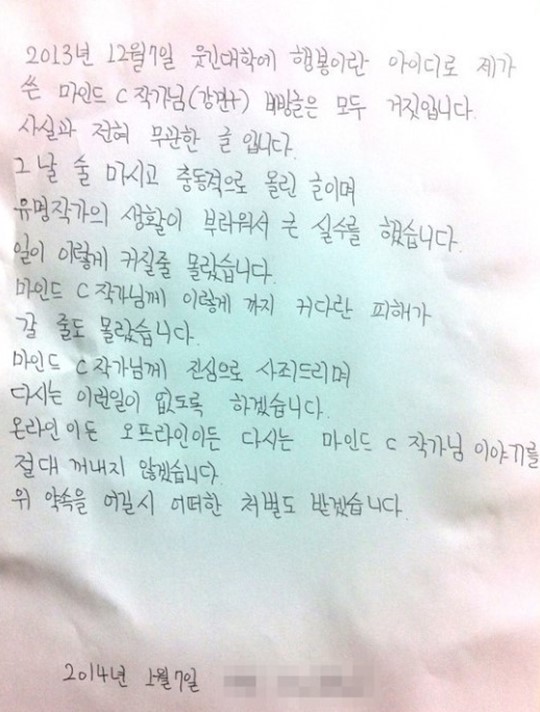 2013년 12월7일 웃긴대학에 행봉이란 아이디로 제가
쓴 마인드 C 작가님(강건+) 비방글은 모두 거짓입니다.
사실과 전혀 무관한 글 입니다.
그 날 술 마시고 충동적으로 올린 글이며
유명작가의 생활이 부러워서 큰 실수를 했습니다.
일이 이렇게 커질줄 몰랐습니다.
마인드 C 작가님께 이렇게 까지 커다란 피해가
갈 줄도 몰랐습니다.
마인드 C 작가님께 진심으로 사죄드리며
다시는 이런일이 없도록 하겠습니다.
온라인이든 오프라인이든 다시는 마인드 C 작가님 이야기를
절대 꺼내지 않겠습니다.
위 약속을 어길시 어떠한 처벌도 받겠습니다.
2014년 1월7일